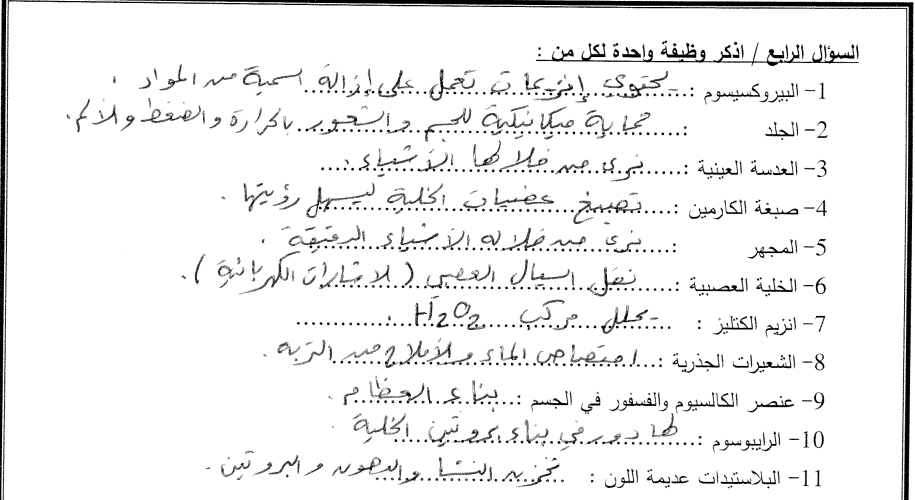 السؤال الرابع / اذكر وظيفة واحدة لكل من :
1- البيروكسيسوم : يحتوي إنزيمات تعمل على إزالة السمية من المواد .
2- الجلد : حماية ميكانيكية للجسم والشعور بالحرارة والضغط والألم .
3- العدسة العينية : نرى من خلالها الأشياء .
4- صبغة الكارمين : تصبغ عضيات الخلية ليسهل رؤيتها .
5- المجهر : نرى من خلاله الأشياء الدقيقة .
6- الخلية العصبية : نقل السيال العصبي ( للاشارات الكهربائية ) .
7- انزيم الكتليز : يحلل مركب H2O2 .
8- الشعيرات الجذرية : امتصاص الماء والأملاح من التربة .
9- عنصر الكالسيوم والفسفور في الجسم : بناء العظام .
10- الرايبوسوم : لها دور في بناء بروتين الخلية .
11- البلاستيدات عديمة اللون : تخزين النشا والدهون والبروتين .